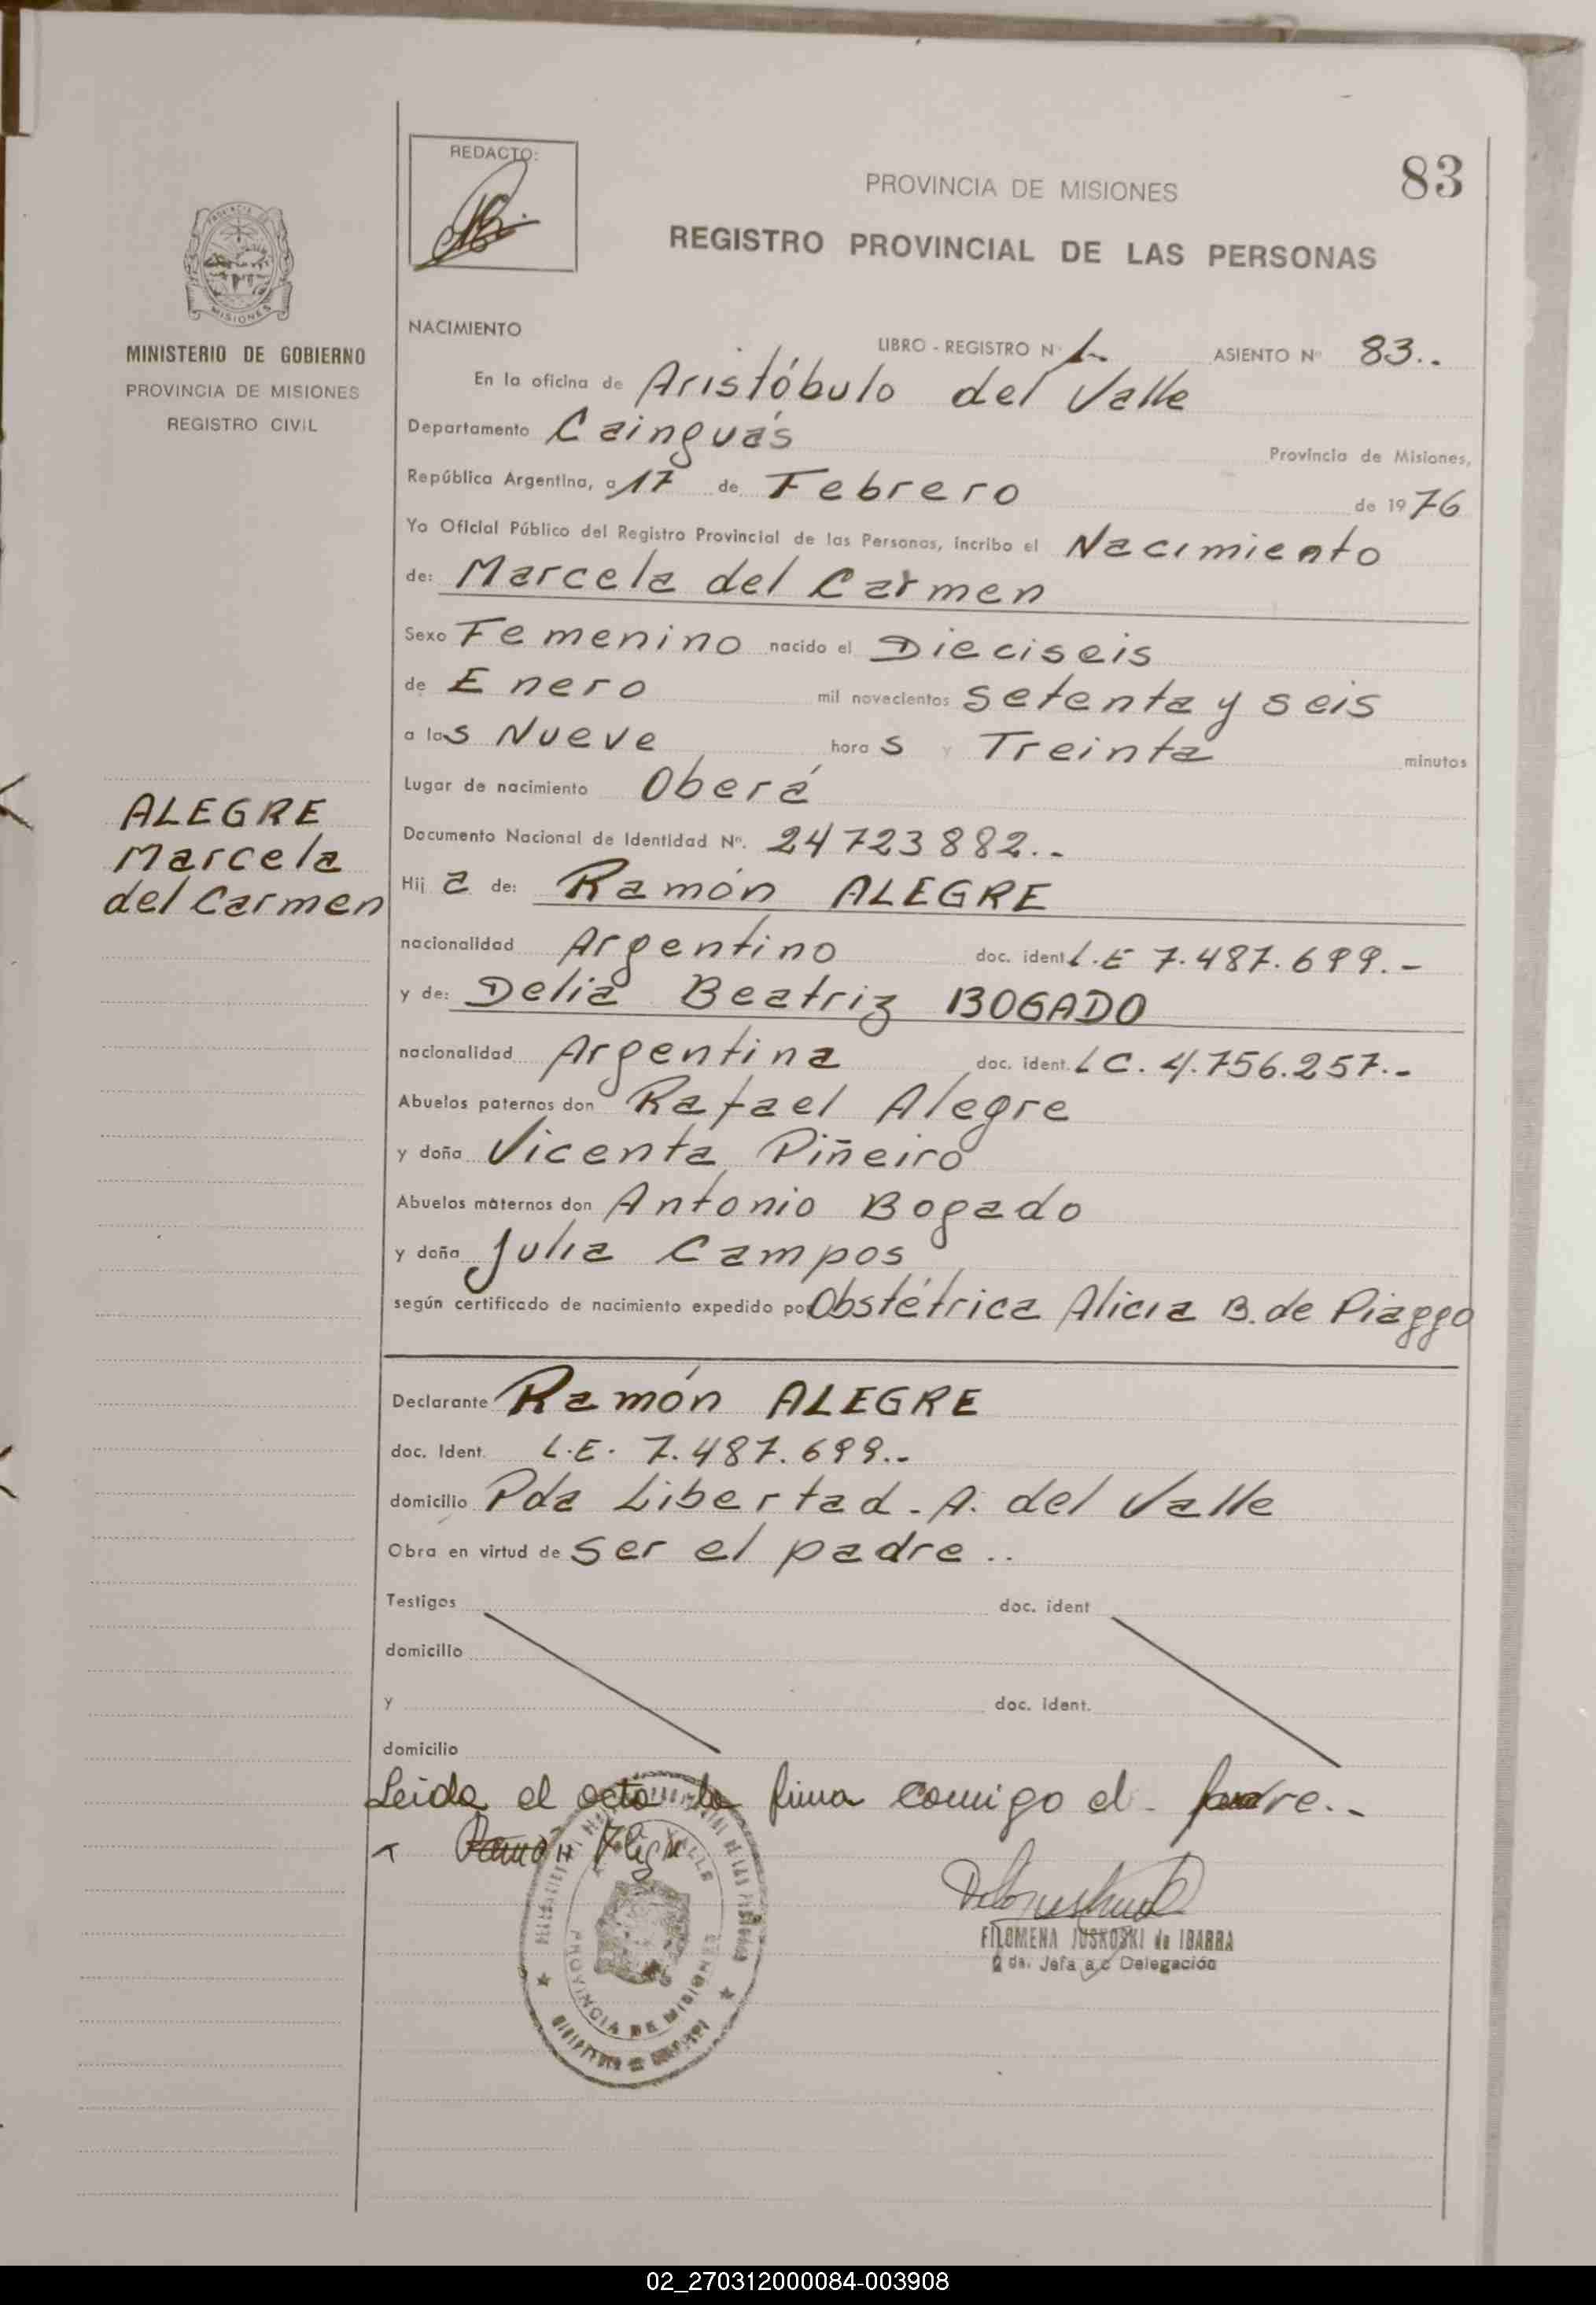 REDACTO:
PROVINCIA DE MISIONES
83
REGISTRO PROVINCIAL DE LAS PERSONAS
MISIONES
MINISTERIO DE GOBIERNO
PROVINCIA DE MISIONES
REGISTRO CIVIL
NACIMIENTO
LIBRO - REGISTRO Nº 1.- ASIENTO Nº 83..
En la oficina de Aristóbulo del Valle
Departamento Cainguás Provincia de Misiones,
República Argentina, a 17 de Febrero de 1976
Yo Oficial Público del Registro Provincial de las Personas, incribo el Nacimiento
de: Marcela del Carmen
Sexo Femenino nacido el Dieciseis
de Enero mil novecientos setenta y seis
a las Nueve horas y Treinta minutos
Lugar de nacimiento Oberá
ALEGRE
Marcela
del Carmen
Documento Nacional de Identidad Nº. 24723882.-
Hija de: Ramón ALEGRE
nacionalidad Argentino doc. ident L.E 7.487.699.-
y de: Delia Beatriz BOGADO
nacionalidad Argentina doc. ident. LC. 4.756.257.-
Abuelos paternos don Rafael Alegre
y doña Vicenta Piñeiro
Abuelos maternos don Antonio Bogado
y doña Julia Campos
según certificado de nacimiento expedido por Obstétrica Alicia B. de Piaggo
Declarante Ramón ALEGRE
doc. Ident. L.E. 7.487.699.-
domicilio Pda Libertad - A. del Valle
Obra en virtud de ser el padre..
Testigos doc. ident
domicilio
y doc. ident.
domicilio
Leida el acta la firma comigo el padre..
Ramón
PROVINCIA DE MISIONES
FILOMENA JUSKOSKI de IBARRA
2 da. Jefa a c Delegación
02_270312000084-003908